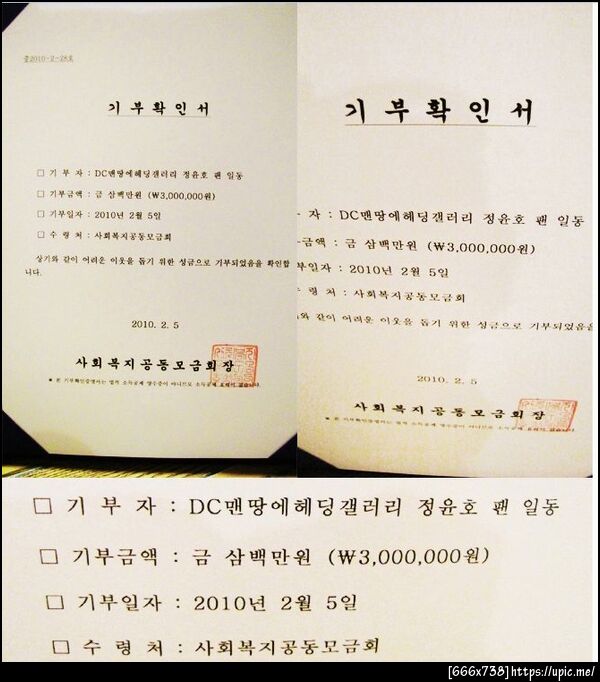 중2010-2-28호
기부확인서
□ 기 부 자 : DC맨땅에헤딩갤러리 정윤호 팬 일동
□ 기부금액 : 금 삼백만원 (₩3,000,000원)
□ 기부일자 : 2010년 2월 5일
□ 수 령 처 : 사회복지공동모금회
상기와 같이 어려운 이웃을 돕기 위한 성금으로 기부되었음을 확인합
니다.
2010. 2. 5
사회복지공동모금회장
※ 본 기부확인증명서는 법적 소득공제 영수증이 아니므로 소득공제 효력이 없습니다.
기부확인서
자 : DC맨땅에헤딩갤러리 정윤호 팬 일동
금액 : 금 삼백만원 (₩3,000,000원)
부일자 : 2010년 2월 5일
수 령 처 : 사회복지공동모금회
와 같이 어려운 이웃을 돕기 위한 성금으로 기부되었음을
2010. 2. 5
사회복지공동모금회장
※ 본 기부확인증명서는 법적 소득공제 영수증이 아니므로 소득공제 효력이 없습니다.
□ 기 부 자 : DC맨땅에헤딩갤러리 정윤호 팬 일동
□ 기부금액 : 금 삼백만원 (₩3,000,000원)
□ 기부일자 : 2010년 2월 5일
□ 수 령 처 : 사회복지공동모금회
[666x738]https://upic.me/